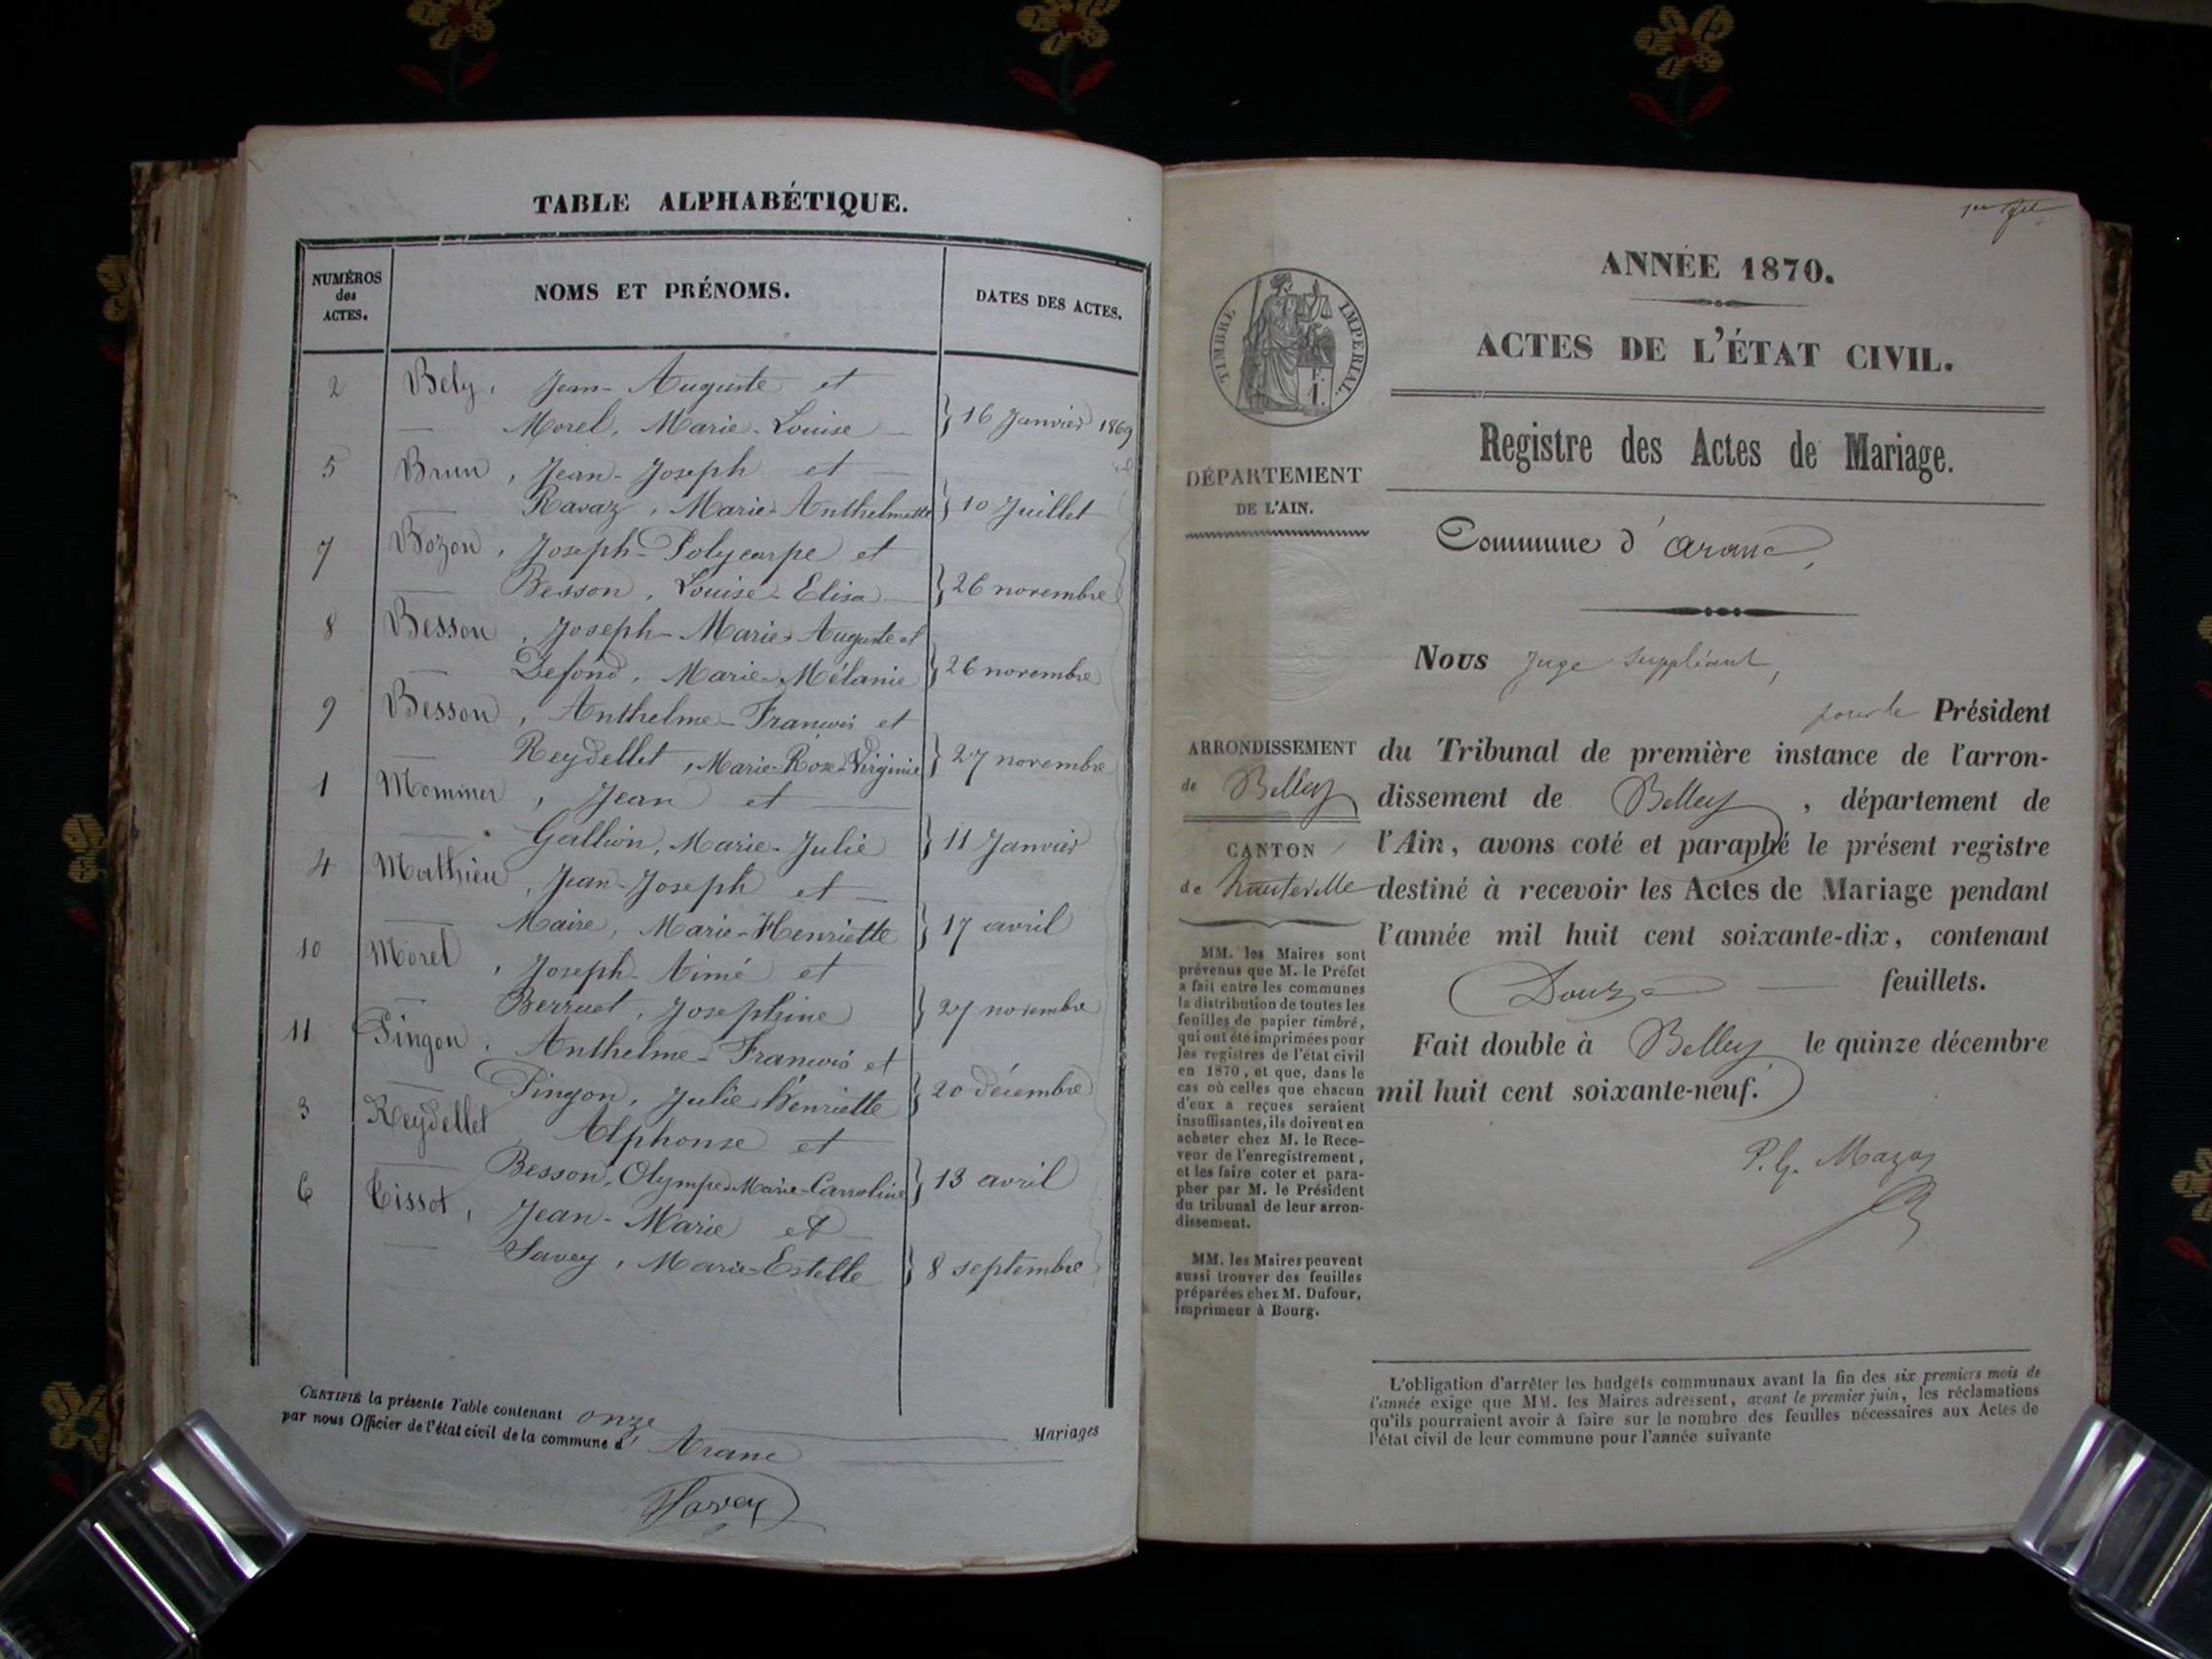 TABLE ALPHABÉTIQUE.
NUMÉROS
des
ACTES.
NOMS ET PRÉNOMS.
DATES DES ACTES.
2 Bely, Jean-Auguste et
Morel, Marie-Louise } 16 Janvier 1869
5 Brun, Jean-Joseph et
Ravaz, Marie-Anthelmette } 10 Juillet
7 Bozon, Joseph-Polycarpe et
Besson, Louise-Elisa } 26 novembre
8 Besson, Joseph-Marie-Auguste et
Defond, Marie-Mélanie } 26 novembre
9 Besson, Anthelme-François et
Reydellet, Marie-Rose-Virginie } 27 novembre
1 Jean et
Gallion, Marie-Julie } 11 Janvier
4 Mathieu, Jean-Joseph et
Maire, Marie-Henriette } 17 avril
10 Morel, Joseph-Aimé et
Berruet, Joséphine } 27 novembre
11 Pingon, Anthelme-François et
Pingon, Julie Henriette } 20 décembre
3 Reydellet Alphonse et
Besson, Olympe-Marie-Carroline } 13 avril
6 Tissot, Jean-Marie et
Savey, Marie-Estelle } 8 septembre
CERTIFIÉ la présente Table contenant onze Mariages
par nous Officier de l'état civil de la commune d' Aranc
Savey
ANNÉE 1870.
ACTES DE L'ÉTAT CIVIL.
Registre des Actes de Mariage.
TIMBRE IMPERIAL.
DÉPARTEMENT
DE L'AIN.
Commune d'aranc,
Nous Juge Suppléant,
pour le Président
ARRONDISSEMENT
de Belley
CANTON
de hauteville
du Tribunal de première instance de l'arron-
dissement de Belley, département de
l'Ain, avons coté et paraphé le présent registre
destiné à recevoir les Actes de Mariage pendant
l'année mil huit cent soixante-dix, contenant
Douze feuillets.
Fait double à Belley le quinze décembre
mil huit cent soixante-neuf.
P. G. Mazas
MM. les Maires sont
prévenus que M. le Préfet
a fait entre les communes
la distribution de toutes les
feuilles de papier timbré,
qui ont été imprimées pour
les registres de l'état civil
en 1870, et que, dans le
cas où celles que chacun
d'eux a reçues seraient
insuffisantes, ils doivent en
acheter chez M. le Rece-
veur de l'enregistrement,
et les faire coter et para-
pher par M. le Président
du tribunal de leur arron-
dissement.
MM. les Maires peuvent
aussi trouver des feuilles
préparées chez M. Dufour,
imprimeur à Bourg.
L'obligation d'arrêter les budgets communaux avant la fin des six premiers mois de
l'année exige que MM. les Maires adressent, avant le premier juin, les réclamations
qu'ils pourraient avoir à faire sur le nombre des feuilles nécessaires aux Actes de
l'état civil de leur commune pour l'année suivante